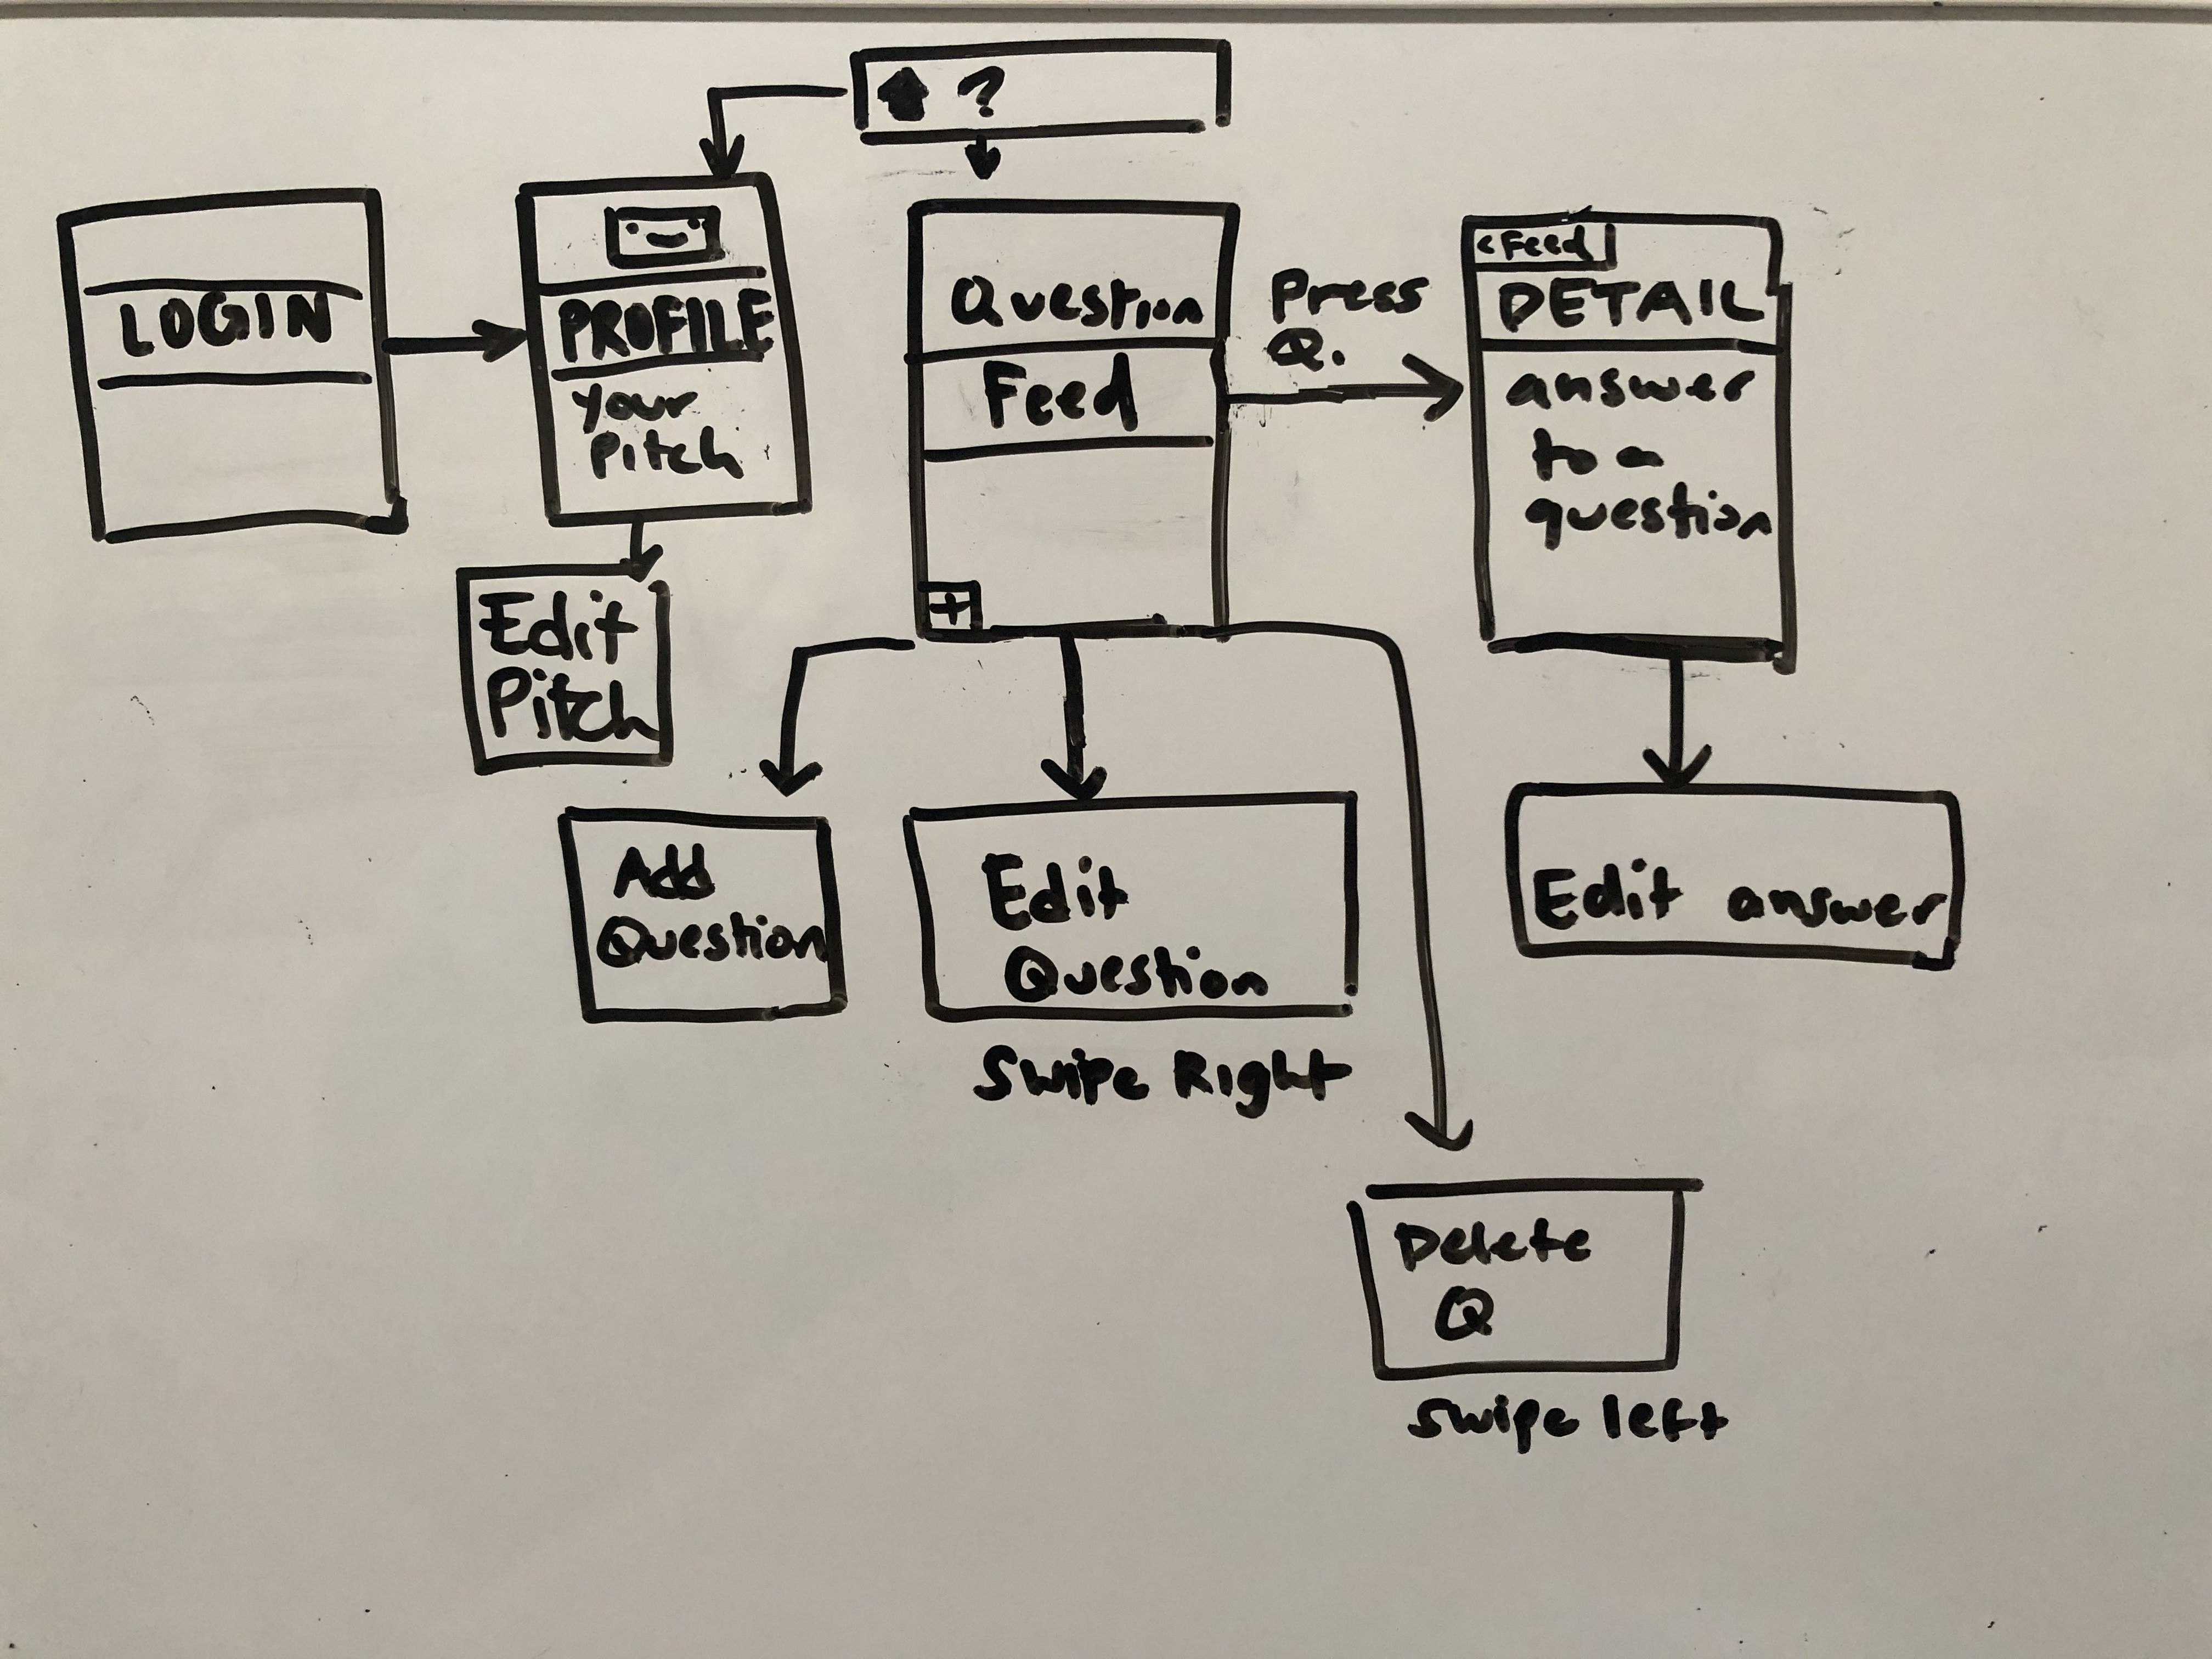 ?
LOGIN
PROFILE
your
Pitch
Edit
Pitch
Question
Feed
+
Press
Q.
< Feed
DETAIL
answer
to a
question
Add
Question
Edit
Question
Swipe Right
Edit answer
Delete
Q
Swipe left